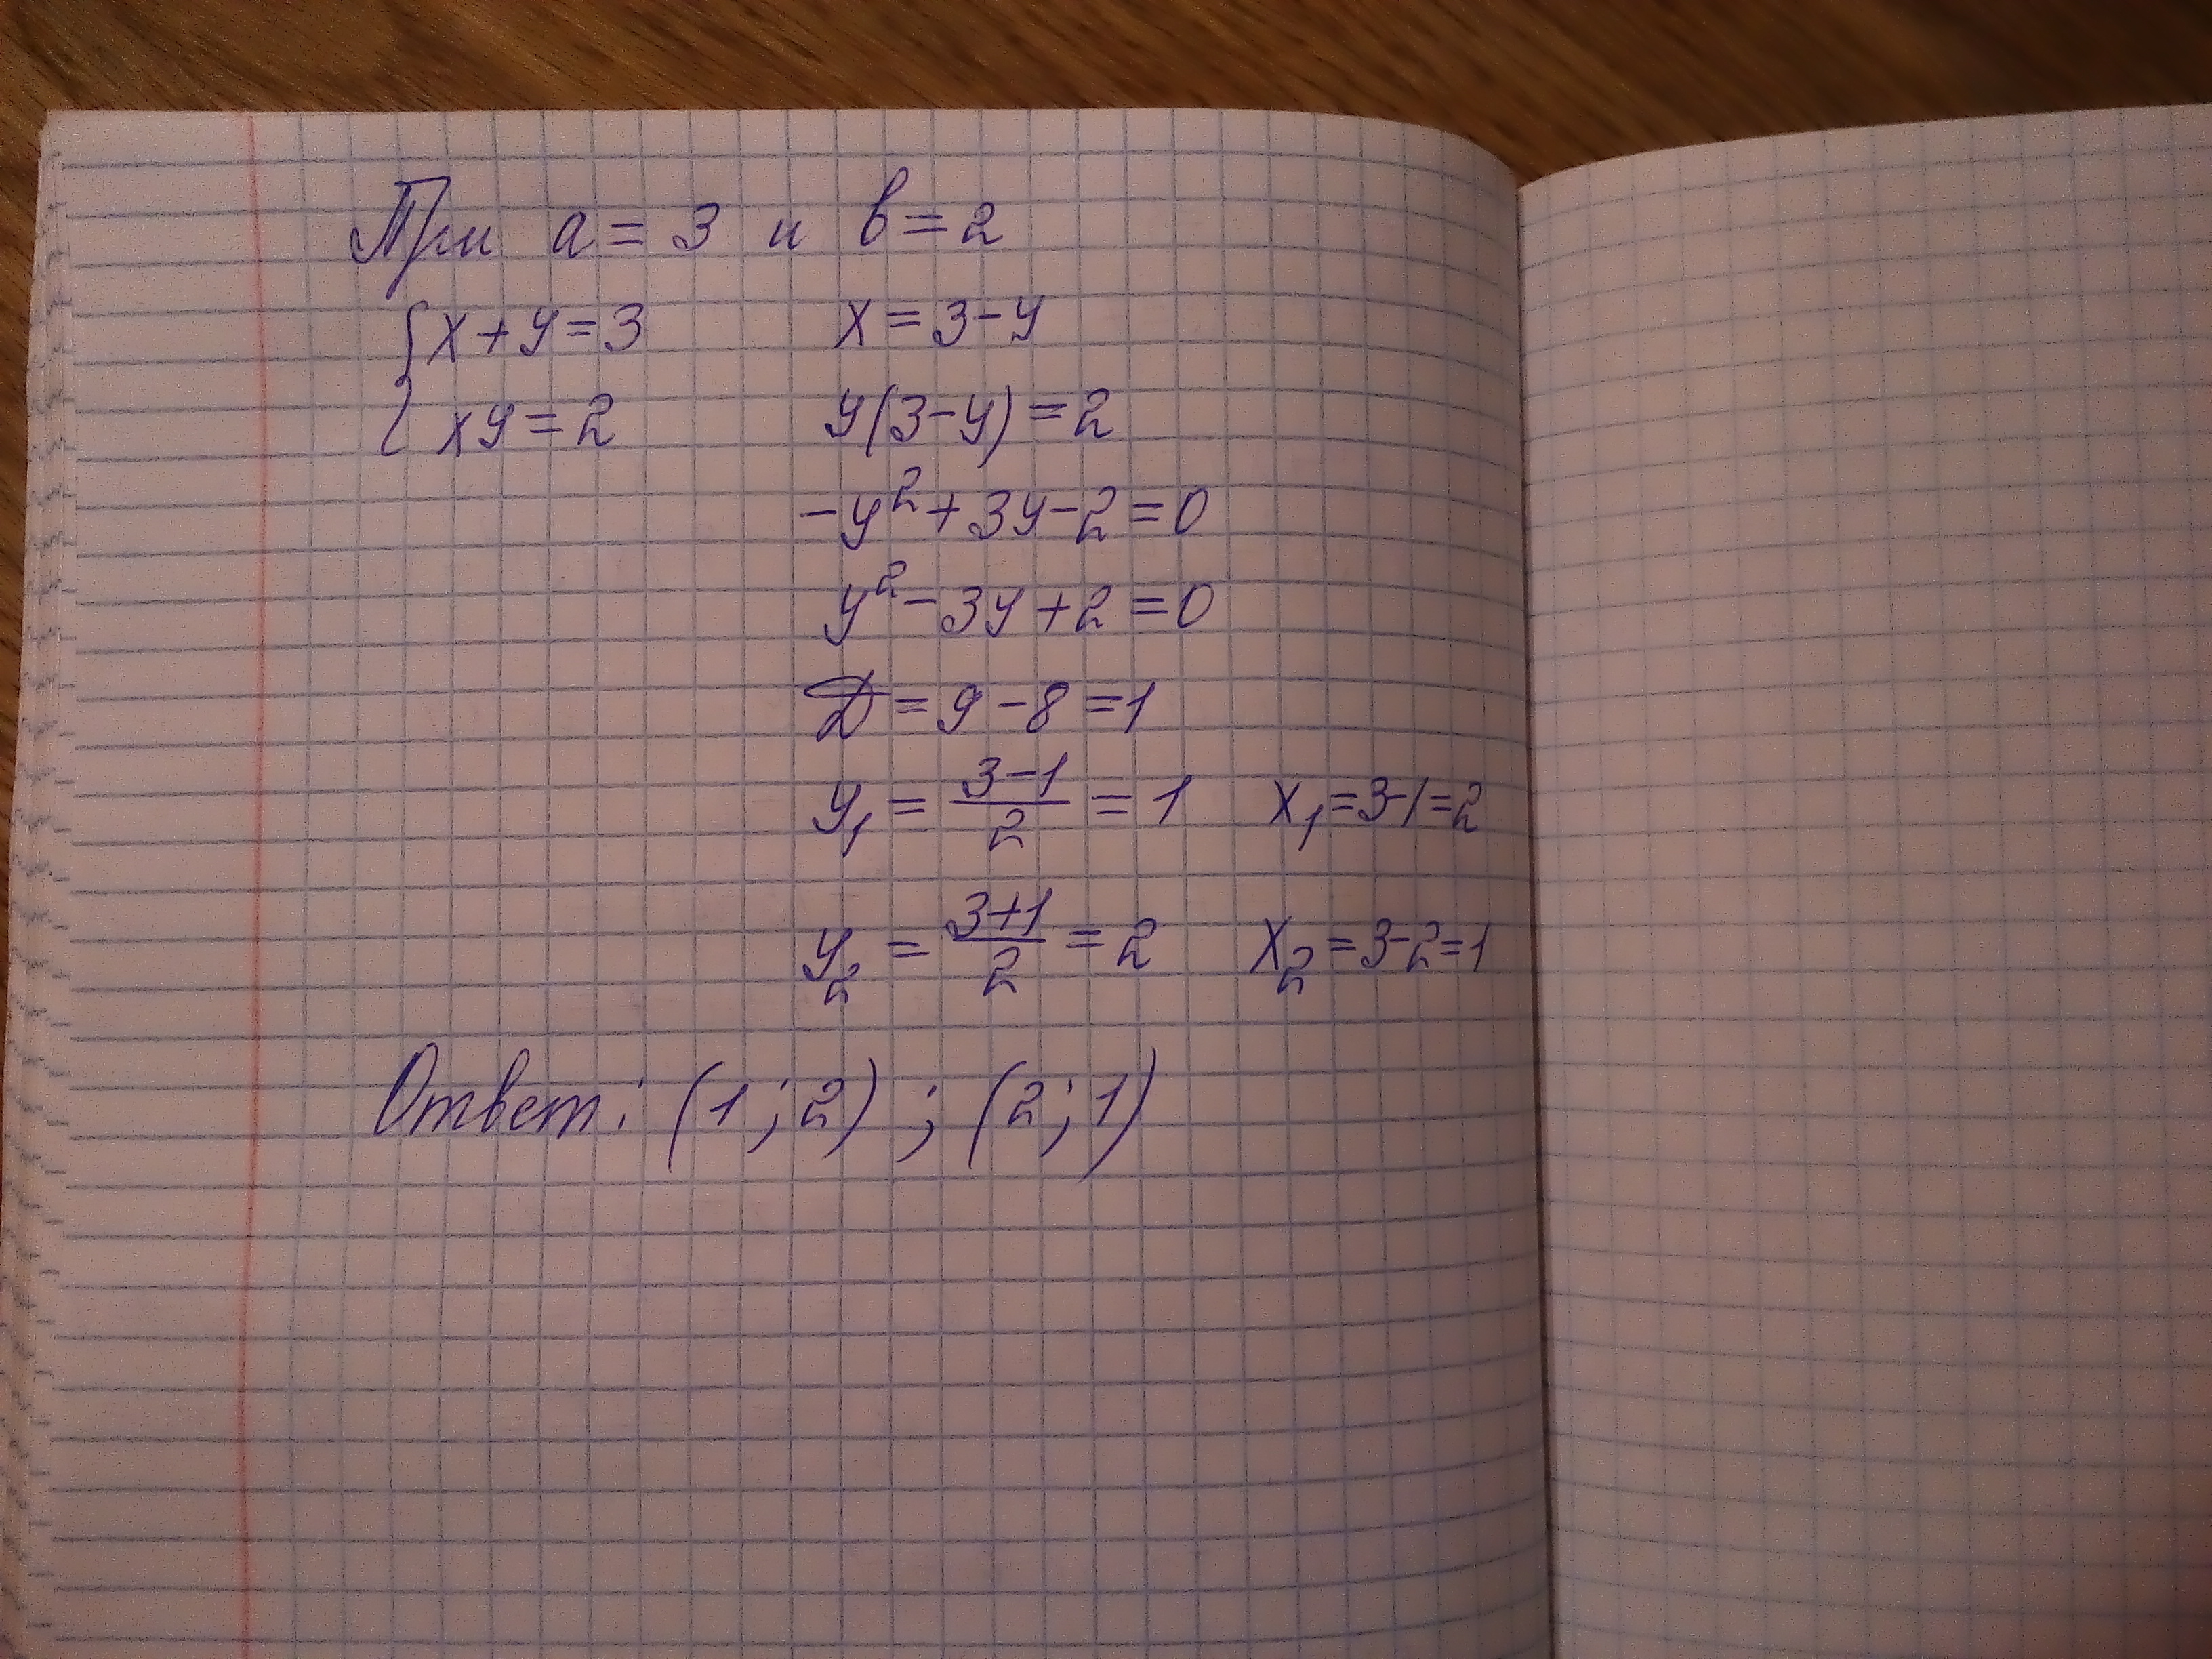 При a = 3 и в = 2
{ x + y = 3 x = 3 - y
xy = 2 y(3 - y) = 2
-y² + 3y - 2 = 0
y² - 3y + 2 = 0
Д = 9 - 8 = 1
y₁ = (3-1)/2 = 1 x₁ = 3-1 = 2
y₂ = (3+1)/2 = 2 x₂ = 3-2 = 1
Ответ: (1; 2) ; (2; 1)